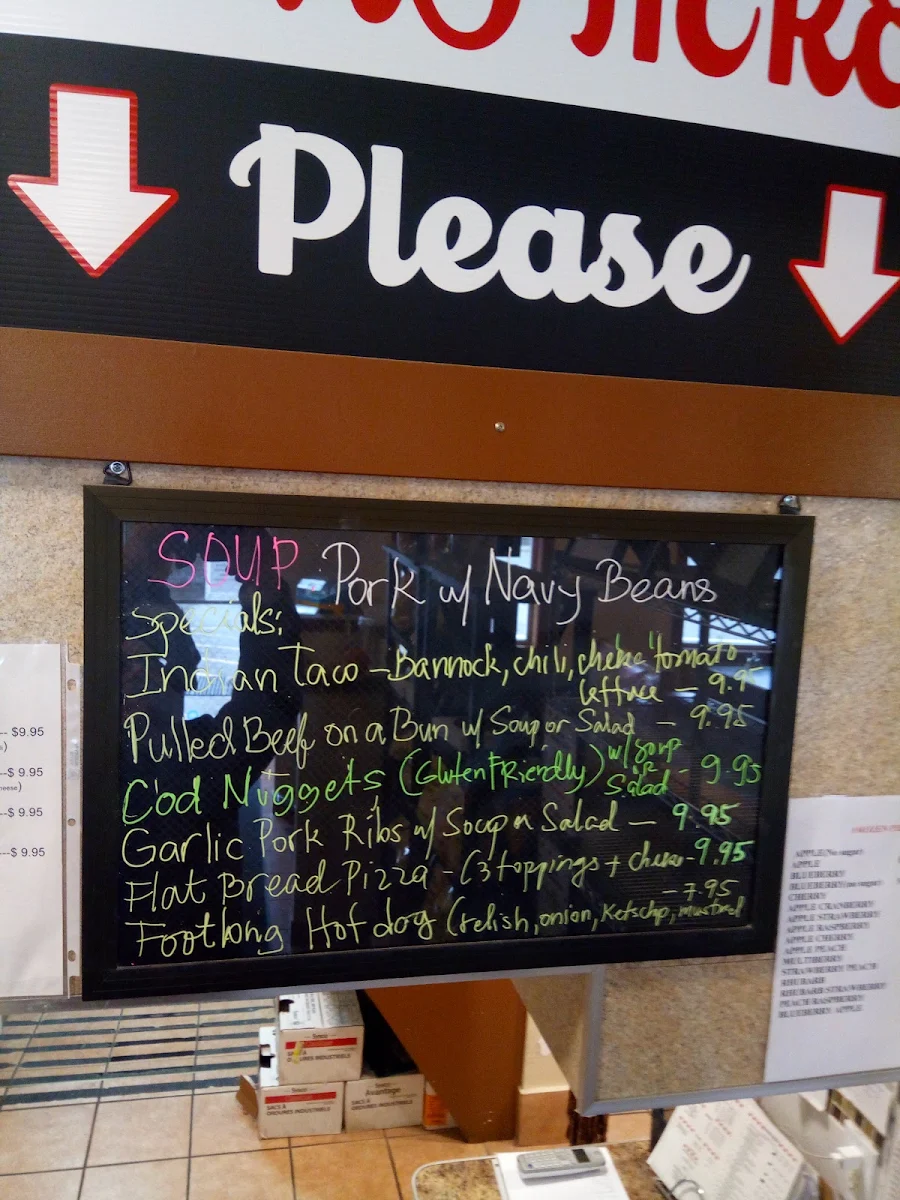 Please
SOUP Pork w/ Navy Beans
Specials:
Indian Taco - Bannock, chili, cheese tomato
lettuce - 9.95
Pulled Beef on a Bun w/ Soup or Salad - 9.95
Cod Nuggets (Gluten Friendly) w/ soup or Salad - 9.95
Garlic Pork Ribs w/ Soup or Salad - 9.95
Flat Bread Pizza - (3 toppings + cheese - 9.95
- 7.95
Footlong Hot dog (relish, onion, Ketchup, mustard
-- $9.95
--$ 9.95
--$ 9.95
--$ 9.95
APPLE (No sugar)
APPLE
BLUEBERRY
BLUEBERRY (no sugar)
CHERRY
APPLE CRANBERRY
APPLE STRAWBERRY
APPLE RASPBERRY
APPLE CHERRY
APPLE PEACH
MULTIBERRY
STRAWBERRY PEACH
RHUBARB
RHUBARB STRAWBERRY
PEACH RASPBERRY
BLUEBERRY APPLE
SACS À
ORDURES INDUSTRIELS
SACS À
ORDURES INDUSTRIELS
Avantage
SACS À
ORDURES INDUSTRIELS